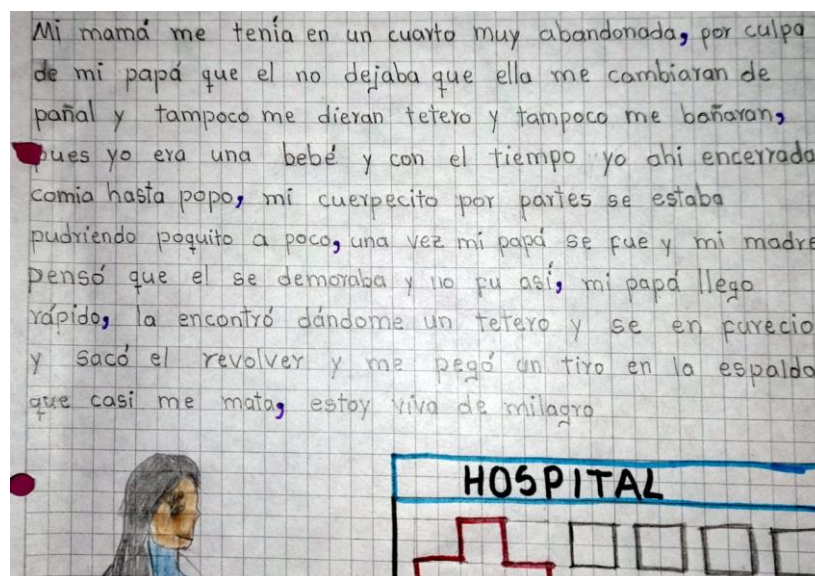 Mi mamá me tenía en un cuarto muy abandonada, por culpa
de mi papá que el no dejaba que ella me cambiaran de
pañal y tampoco me dieran tetero y tampoco me bañaran,
pues yo era una bebé y con el tiempo yo ahi encerrada
comia hasta popo, mi cuerpecito por partes se estaba
pudriendo poquito a poco, una vez mi papá se fue y mi madre
pensó que el se demoraba y no fu así, mi papá llego
rápido, la encontró dándome un tetero y se en furecio
y sacó el revolver y me pegó un tiro en la espalda
que casi me mata, estoy viva de milagro
HOSPITAL